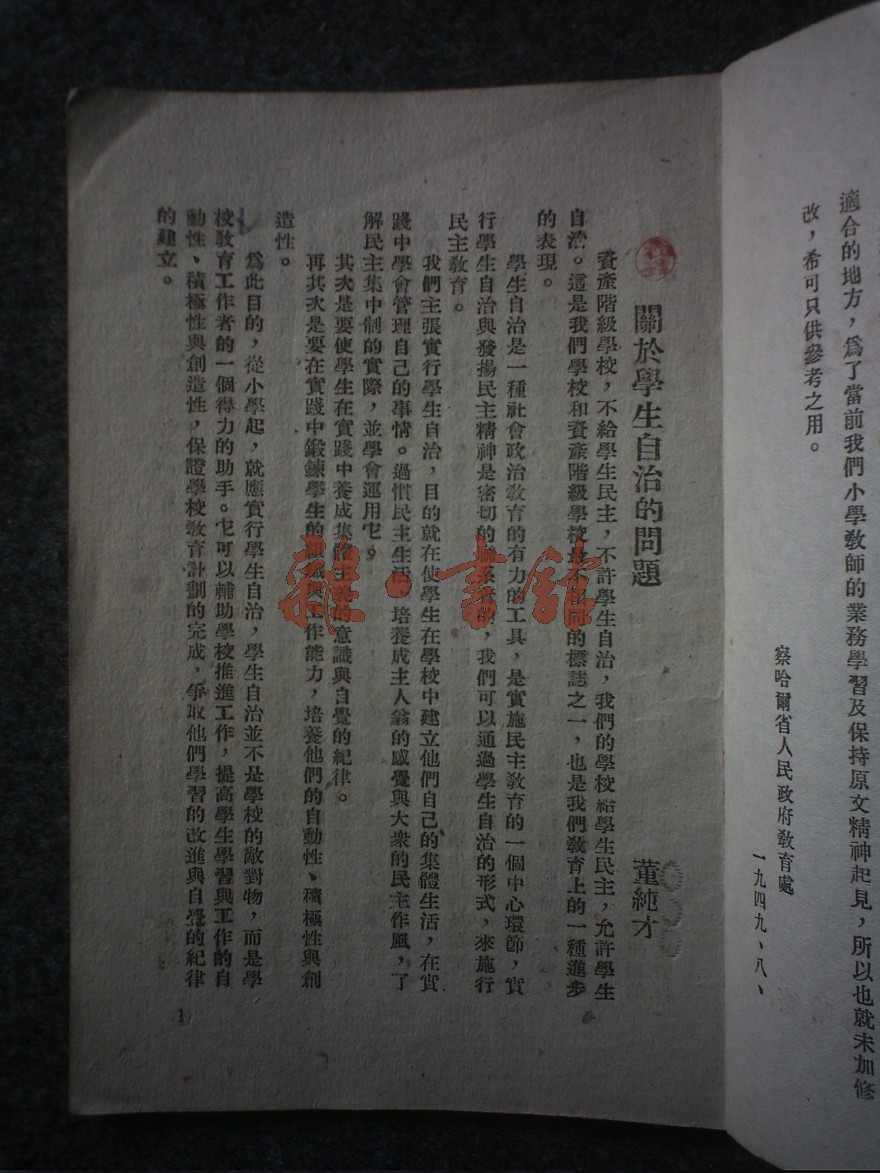 適合的地方，爲了當前我們小學教師的業務學習及保持原文精神起見，所以也就未加修
改，希可只供參考之用。
察哈爾省人民政府教育處
一九四九、八、
關於學生自治的問題
董純才
資產階級學校，不給學生民主，不許學生自治，我們的學校給學生民主，允許學生
自治。這是我們學校和資產階級學校最不相同的標誌之一，也是我們教育上的一種進步
的表現。
學生自治是一種社會政治教育的有力的工具，是實施民主教育的一個中心環節，實
行學生自治與發揚民主精神是密切的聯系着的，我們可以通過學生自治的形式，來施行
民主教育。
我們主張實行學生自治，目的就在使學生在學校中建立他們自己的集體生活，在實
踐中學會管理自己的事情。過慣民主生活，培養成主人翁的感覺與大衆的民主作風，了
解民主集中制的實際，並學會運用它。
其次是要使學生在實踐中養成集體主義的意識與自覺的紀律。
再其次是要在實踐中鍛鍊學生的組織與工作能力，培養他們的自動性、積極性與創
造性。
爲此目的，從小學起，就應實行學生自治，學生自治並不是學校的敵對物，而是學
校教育工作者的一個得力的助手。它可以輔助學校推進工作，提高學生學習與工作的自
動性、積極性與創造性，保證學校教育計劃的完成，爭取他們學習的改進與自覺的紀律
的建立。
1
雜·書館